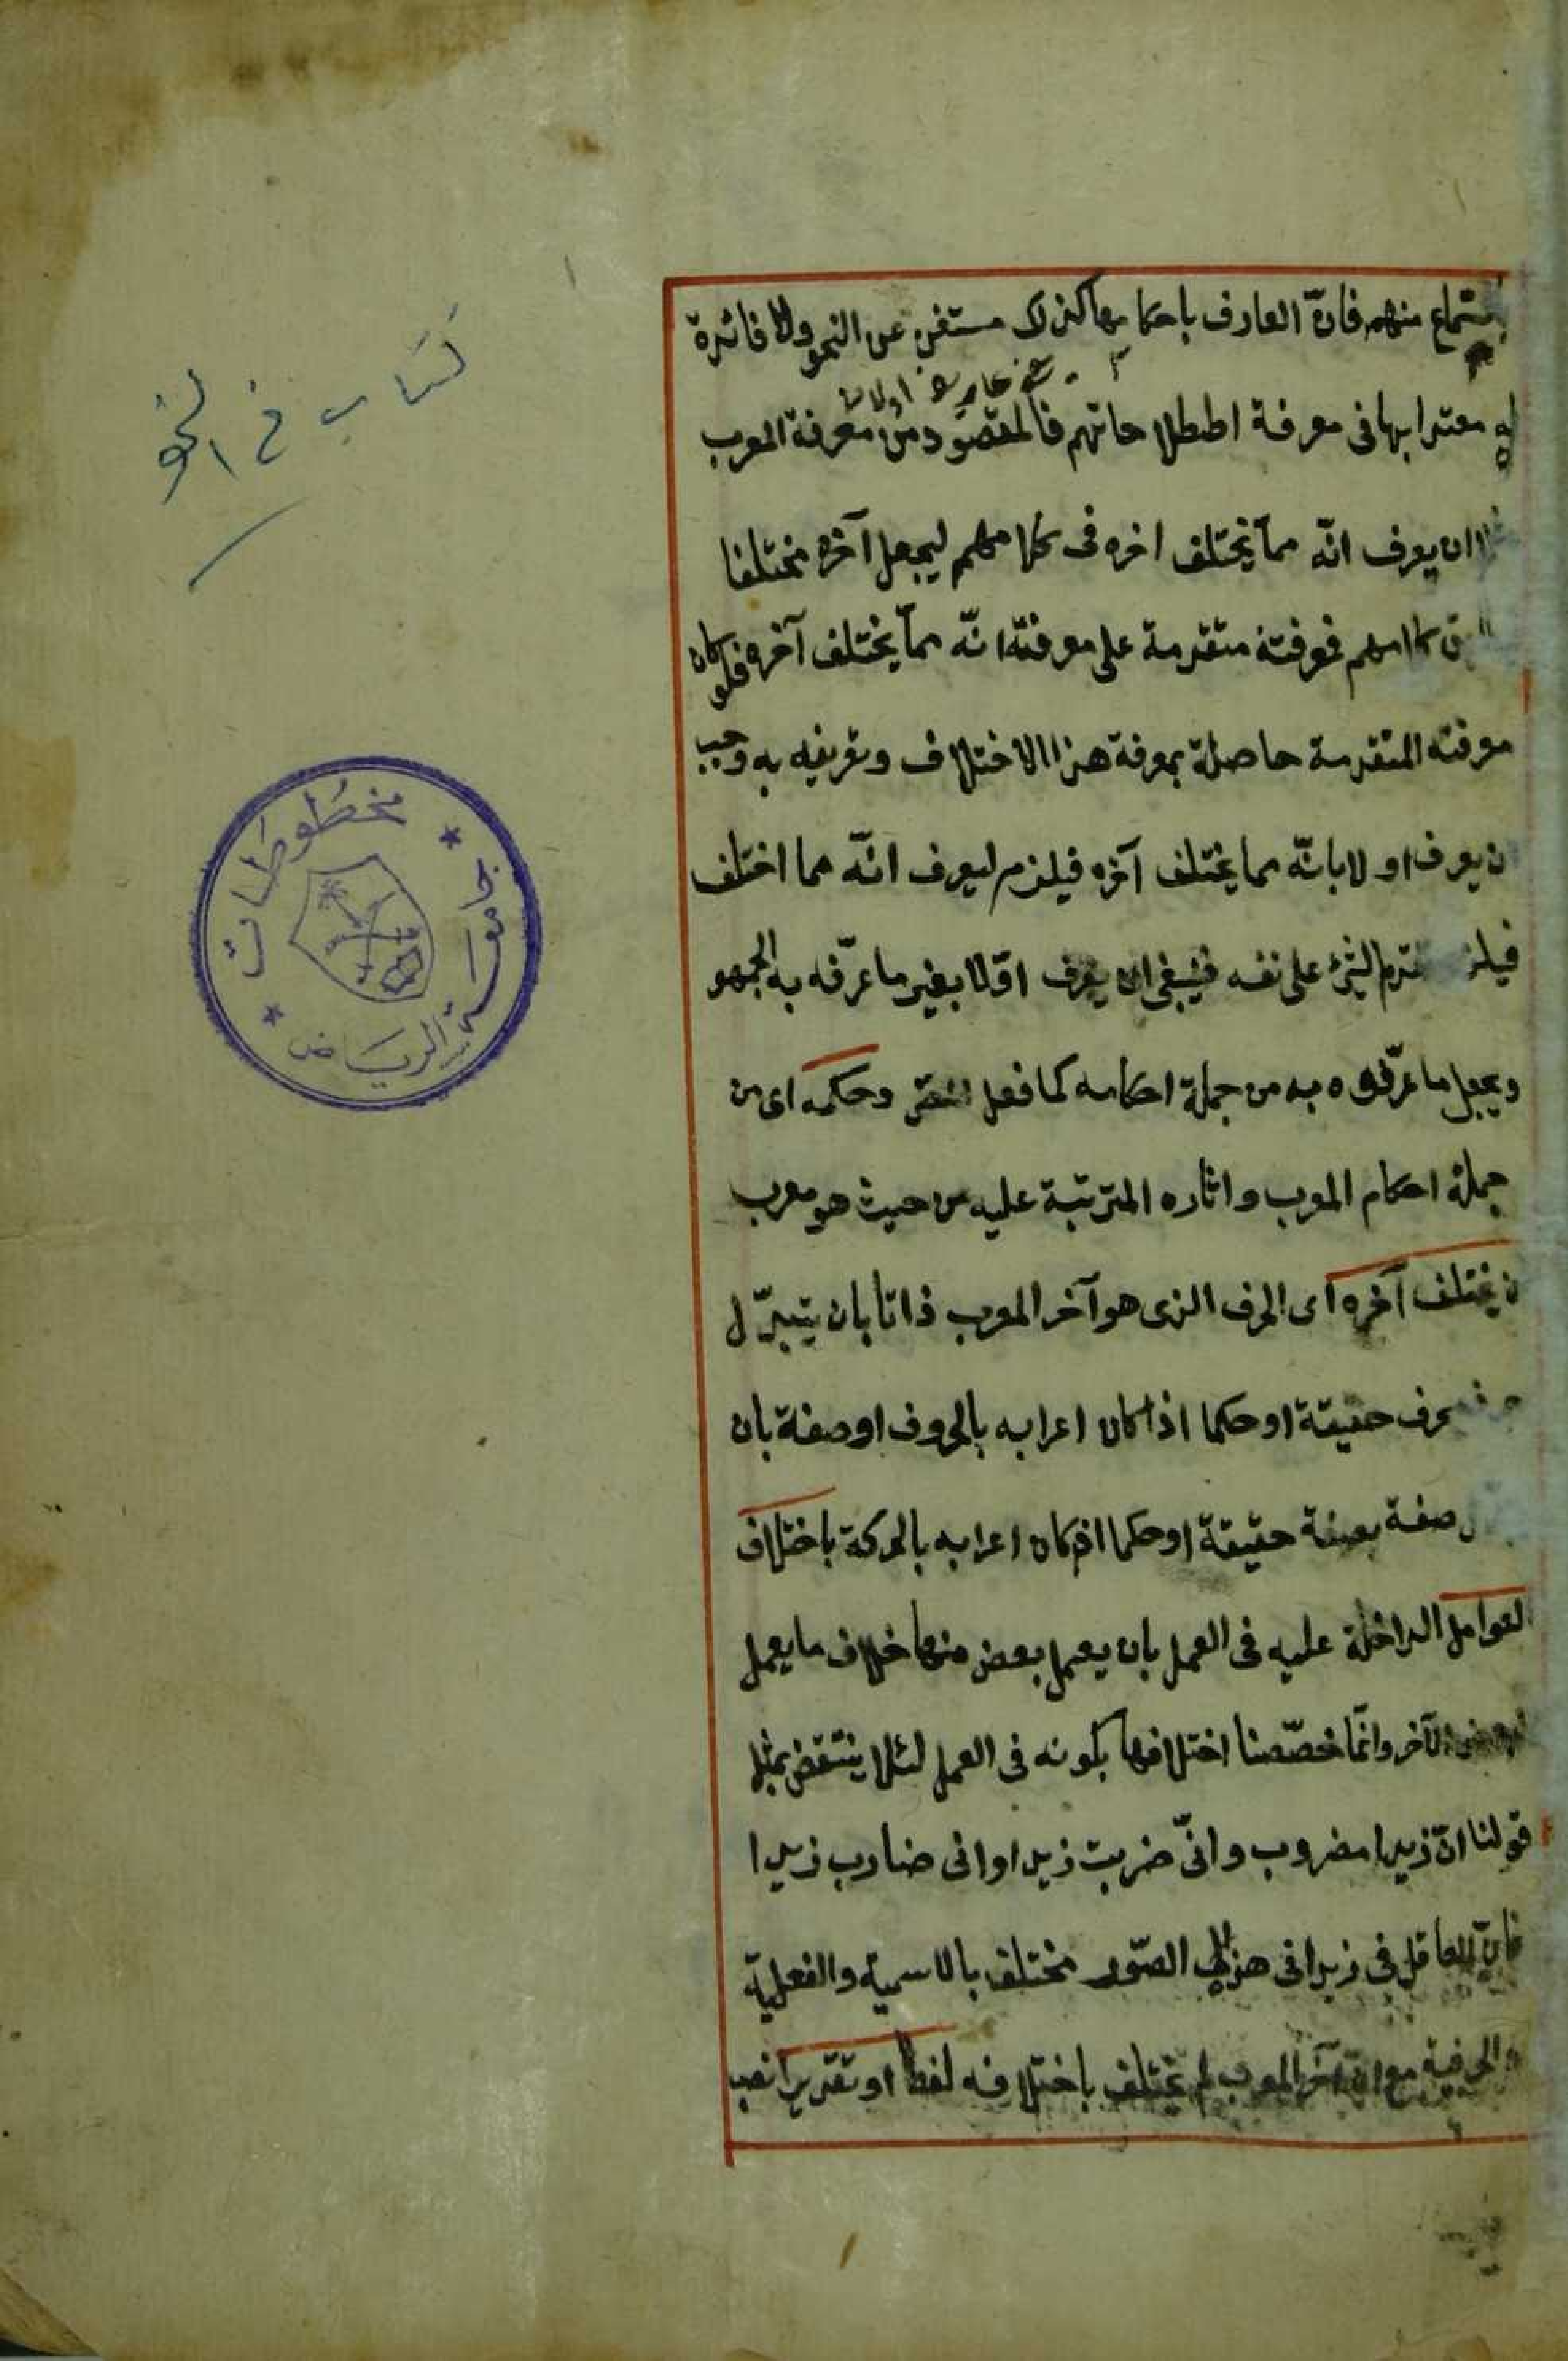 منهم فان العارف باحكامها كذلك مستغن عن النحو ولا فائدة
معتدا بها فى معرفة اصطلاحاتهم فالمقصود من معرفة المعرب
ان يعرف انّه ممّا يختلف اخره فى كلامهم ليجعل آخره مختلفا
كلامهم فمعرفته متقدمة على معرفة انّه ممّا يختلف آخره فلو كان
معرفته المتقدمة حاصلة بمعرفة هذا الاختلاف وتعريفه به وجب
يعرف اولا بانّه مما يختلف آخره فيلزم ليعرف انّه مما اختلف
على نفسه فينبغى ان يعرف اوّلا بغير ما عرّفه به الجمهو
ويجعل ما عرّفوه به من جملة احكامه كما فعل وحكمه اى من
جملة احكام المعرب واثاره المترتبة عليه من حيث هو معرب
يختلف آخره اى الحرف الذى هو آخر المعرب ذاتا بان يتبدّل
حرف حقيقة او حكما اذا كان اعرابه بالحروف او صفة بان
صفة بصفة حقيقة او حكما اذا كان اعرابه بالحركة باختلاف
العوامل الداخلة عليه فى العمل بان يعمل بعض منها خلاف ما يعمل
الآخر وانّما خصّصنا اختلافها بكونه فى العمل لئلا ينتقض بمثل
قولنا انّ زيدا مضروب وانّى ضربت زيدا وانى ضارب زيدا
فانّ العامل فى زيدا فى هذه الصّور مختلف بالاسمية والفعلية
والحرفية مع انّ آخر المعرب لم يختلف باختلافه لفظا او تقديرا نصب
كتاب في النحو
مخطوطات
جامعة الرياض